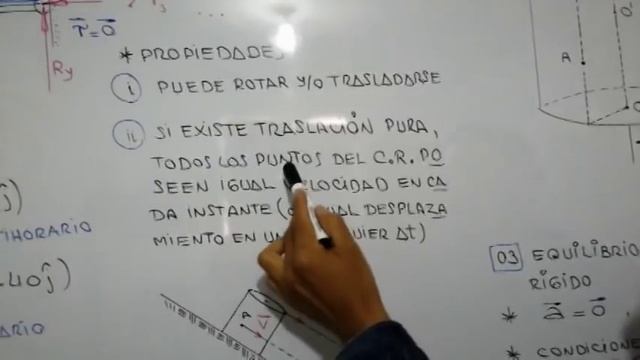 τ⃗=0⃗
Ry
* PROPIEDADES
i) PUEDE ROTAR Y/O TRASLADARSE
ii) SI EXISTE TRASLACIÓN PURA,
TODOS LOS PUNTOS DEL C.R. PO
SEEN IGUAL VELOCIDAD EN CA
DA INSTANTE ( IGUAL DESPLAZA
MIENTO EN UN Δt)
ĵ)
THORARIO
40ĵ)
ARIO
A
V⃗
A
O'
O
03 EQUILIBRIO
RÍGIDO
* a⃗ = 0⃗
* CONDICIONE